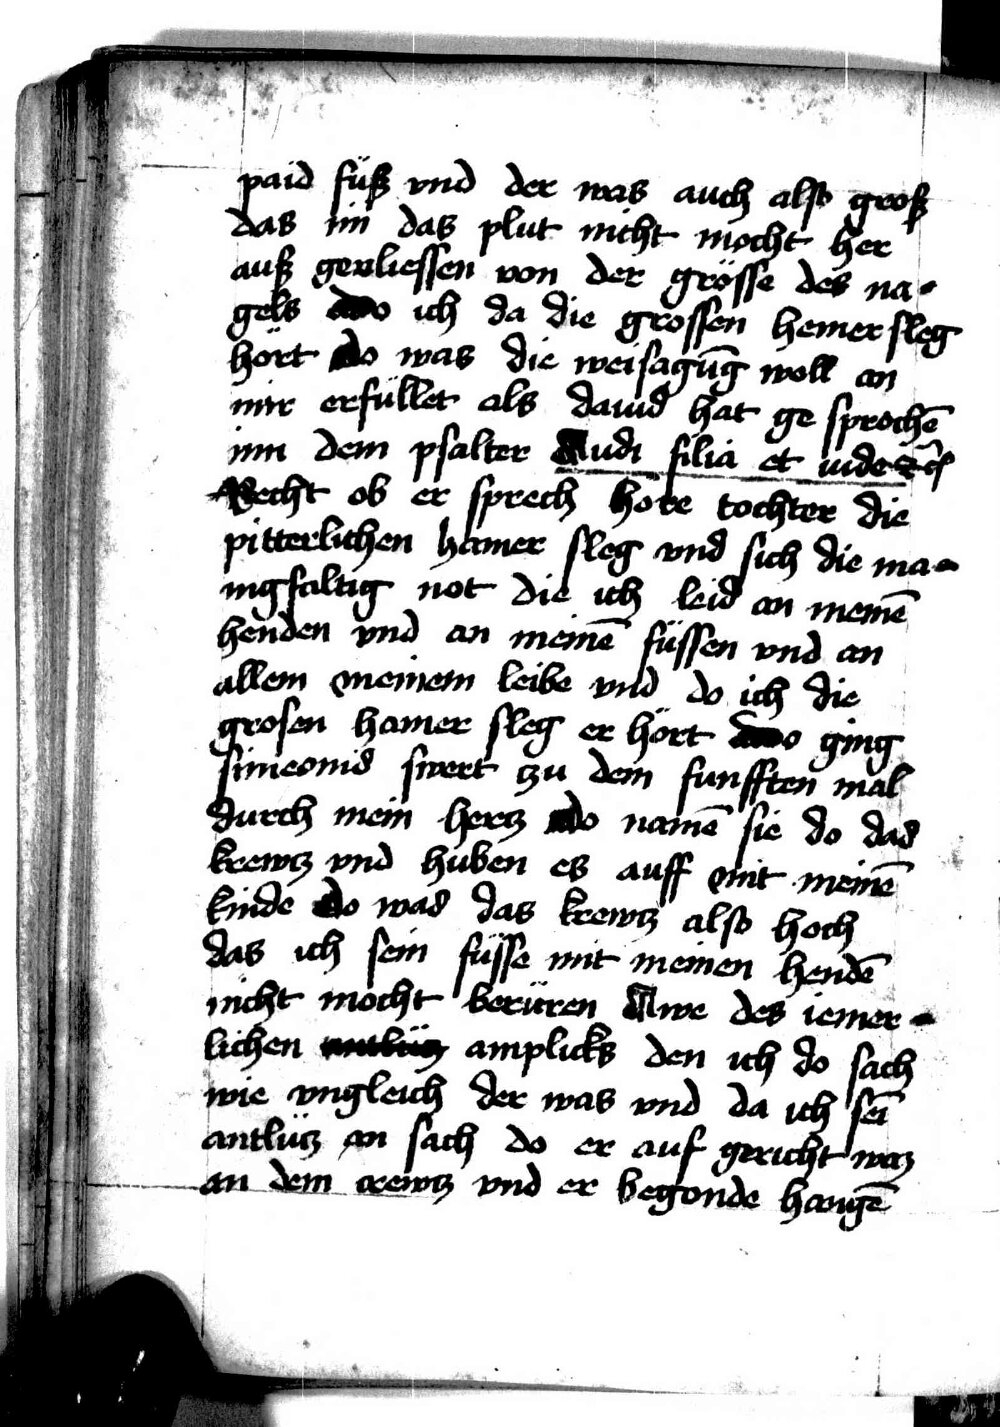 paid füß vnd der was auch also groß
das im das plut nicht mocht her
auß gevliessen von der grösse des na-
gels do ich da die grossen hemer sleg
hört do was die weisagūg woll an
mir erfüllet als dauid hat ge sprochē
inn dem psalter Audi filia et uide ꝛc̄
Recht ob er sprech hore tochter die
pitterlichen hamer sleg vnd sich die ma-
nigfaltig not die ich leid an meinē
henden vnd an meinē füssen vnd an
allem meinem leibe vnd do ich die
grosen hamer sleg er hört do ging
simeonis swert zu dem funfften mal
durch mein hercz do namē sie do das
krewcz vnd huben es auff mit meinē
kinde do was das krewcz also hoch
das ich sein füsse mit meinen hendē
nicht mocht berüren Awe des iemer-
lichen antlücz amplicks den ich do sach
wie vngleich der was vnd da ich sei̅
antlücz an sach do er auf gericht waz
an dem crewcz vnd er begonde hangē